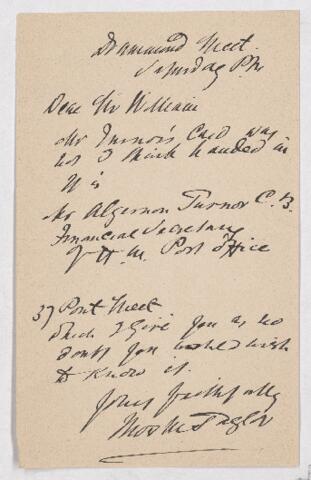 Drummond Street.
Saturday P.M.
Dear Sir William
Mr Turnor's Card was
not I think handed in
It is
Mr Algernon Turnor C.B.
Financial Secretary
H.M. Post office
37 Pont Street
which I give you as no
doubt you would wish
to know it.
Yours faithfully
Taylor